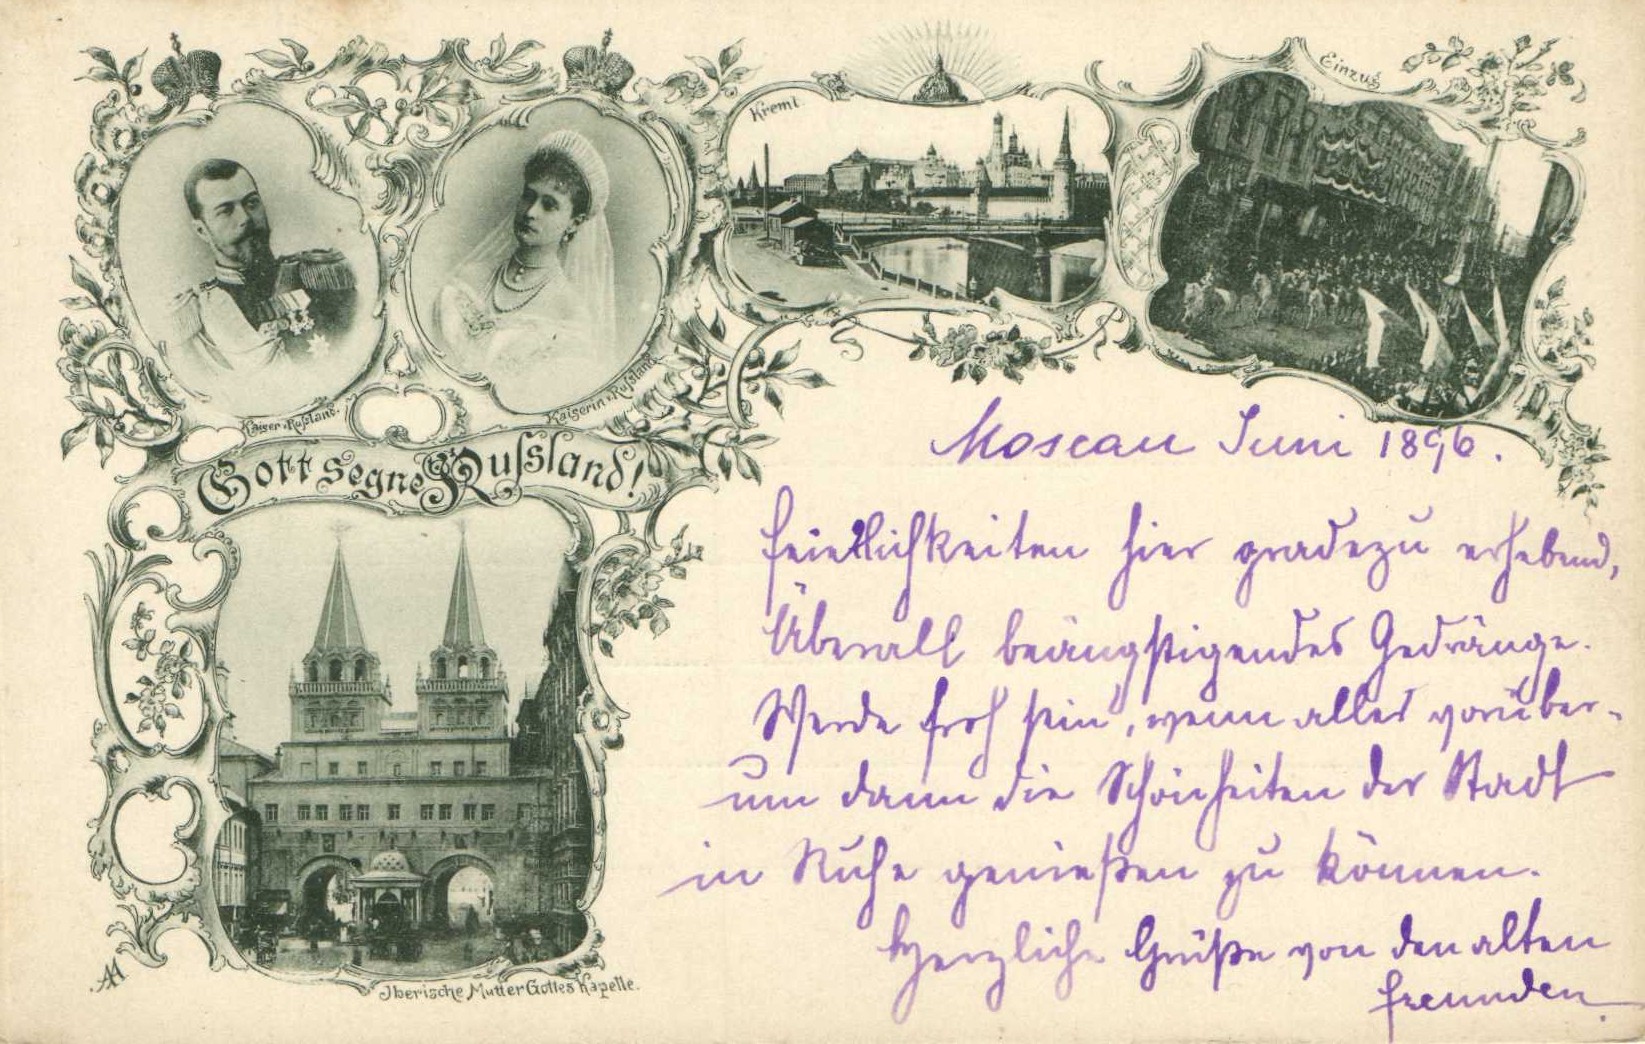 Kreml.
Einzug
Kaiser v. Russland.
Kaiserin v. Russland.
Gott segne Russland!
Iberische Mutter Gottes Kapelle.
AH
Moscau Juni 1896.
Feierlichkeiten hier gradezu erhebend,
Überall beängstigendes Gedränge.
Werde froh sein, wenn alles vorüber,
um dann die Schönheiten der Stadt
in Ruhe genießen zu können.
Herzliche Grüße von den alten
Freunden.